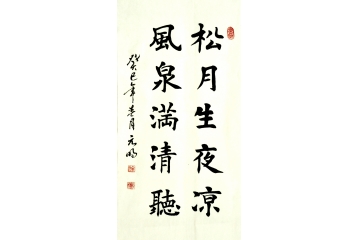 松月生夜凉
風泉满清聽
癸巳年春月元明